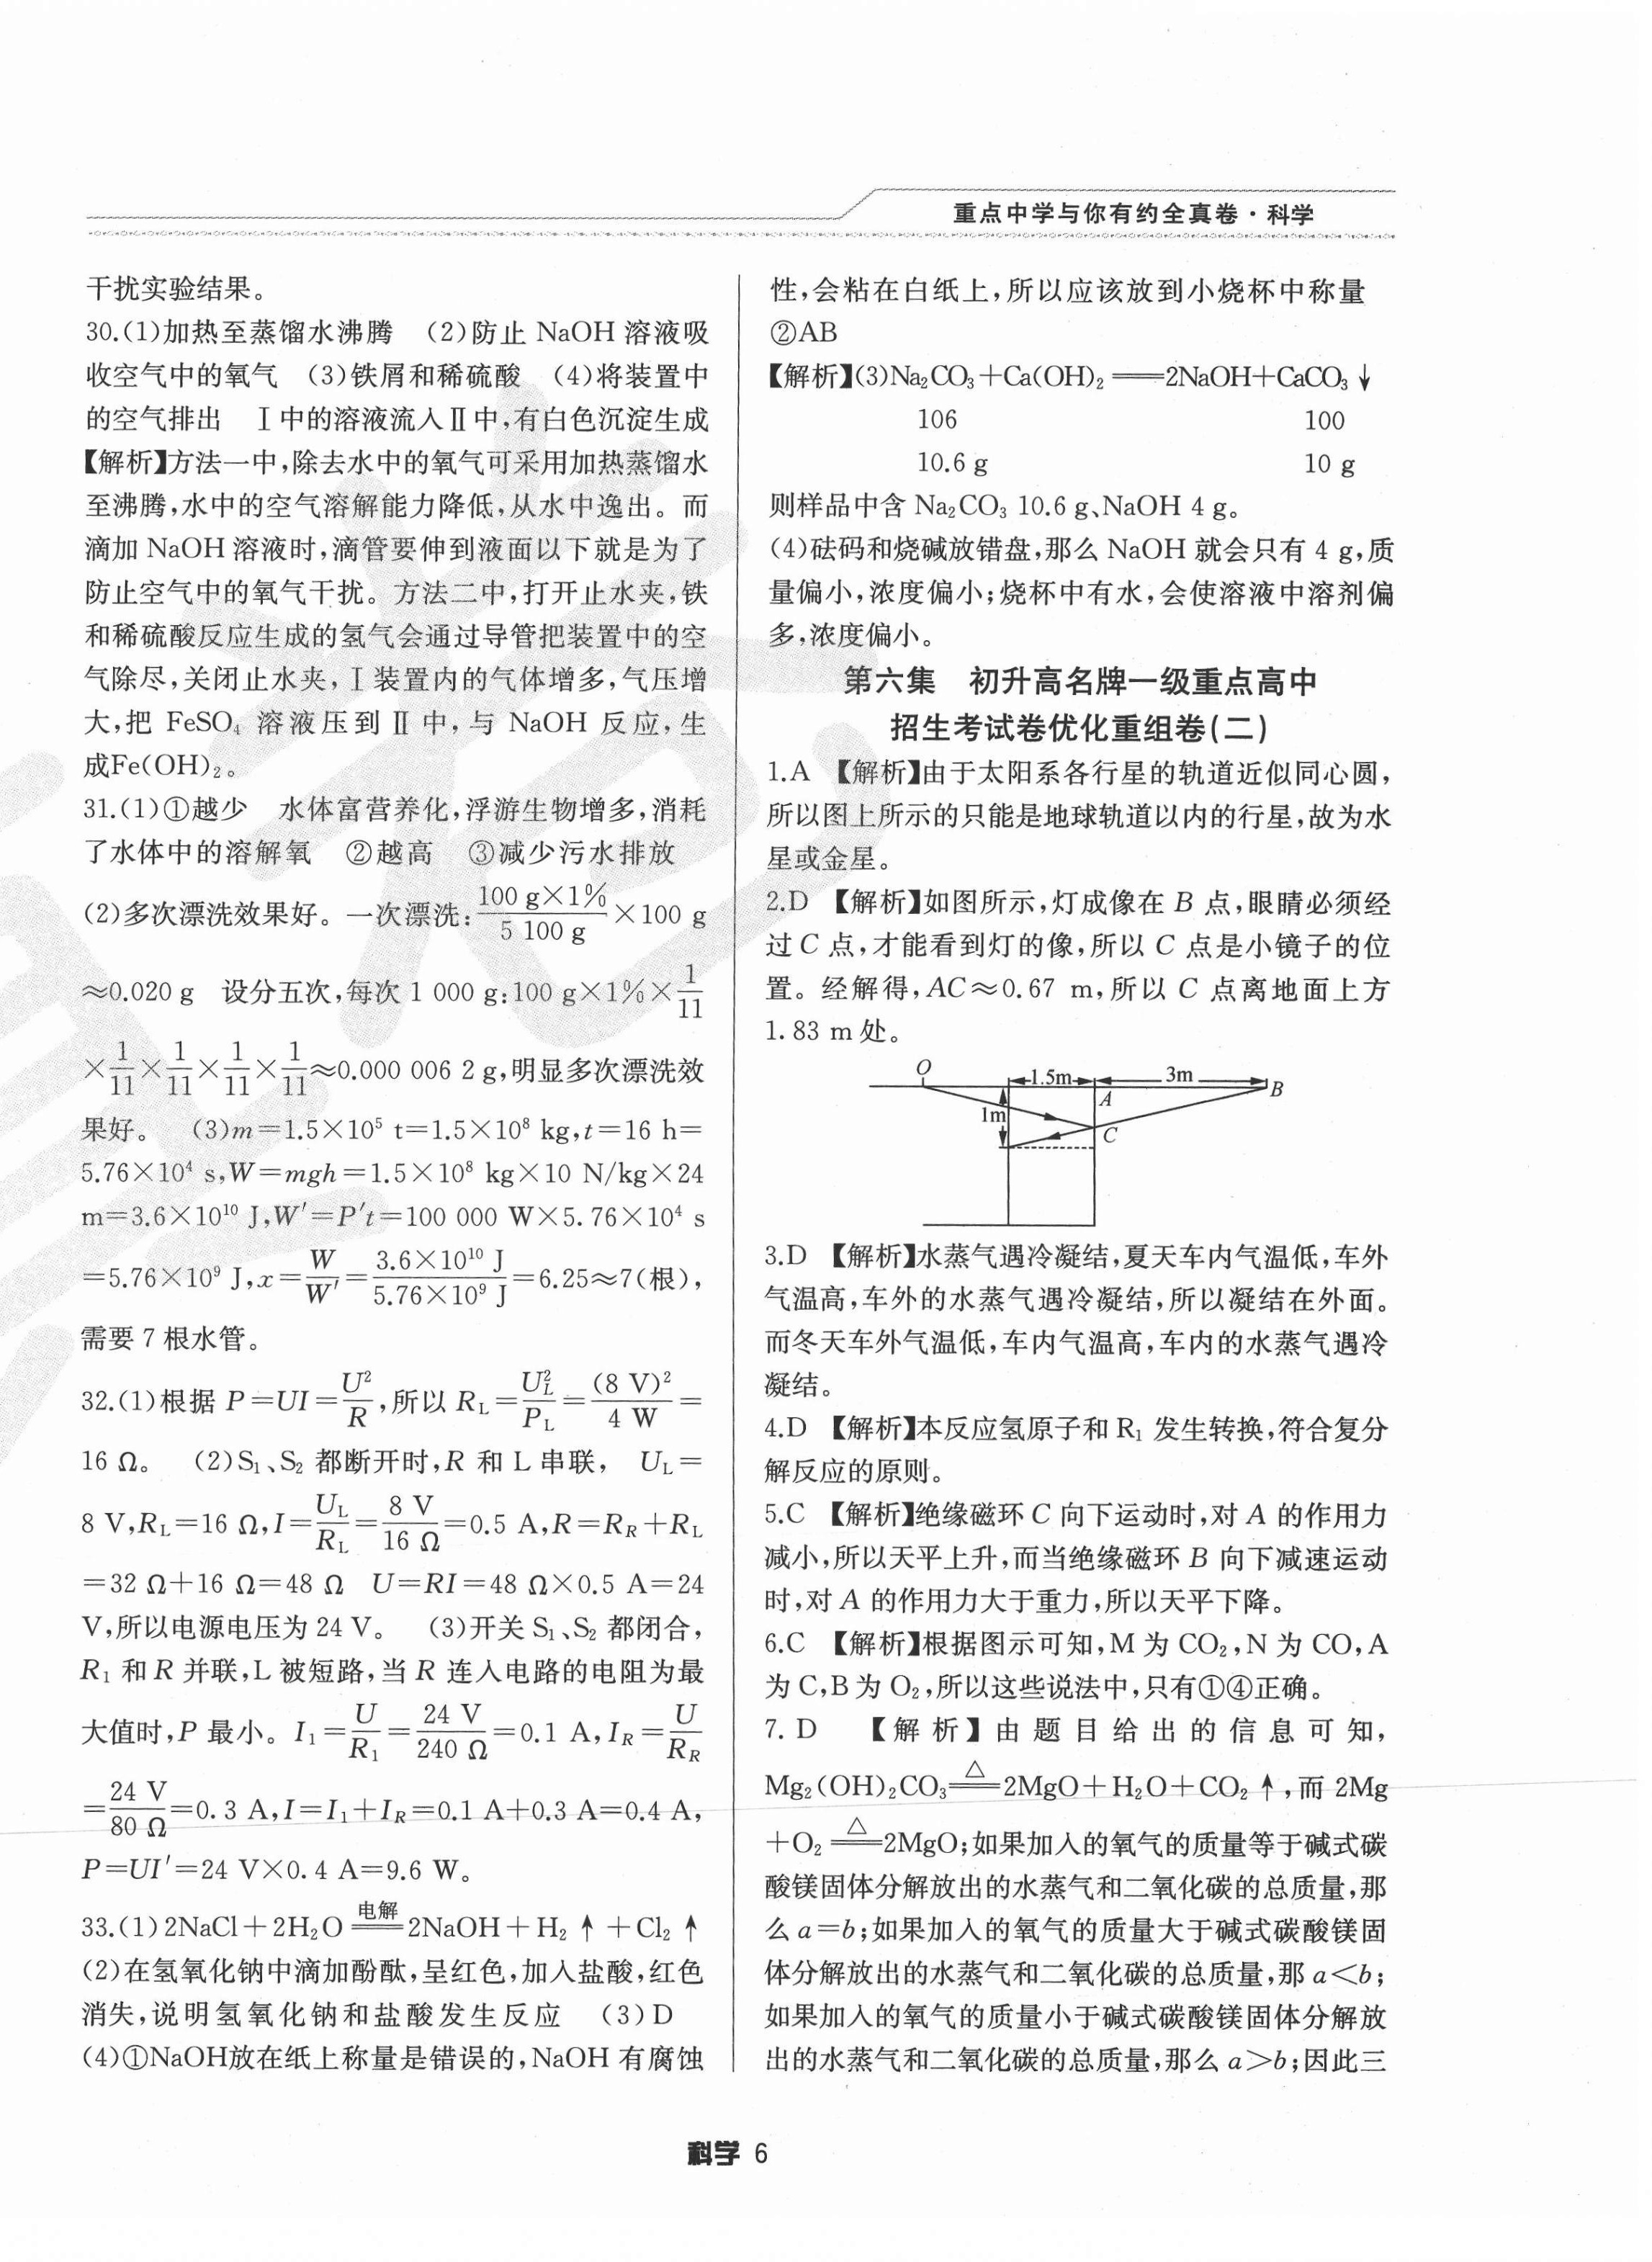 重点中学与你有约全真卷·科学
干扰实验结果。
30.(1)加热至蒸馏水沸腾 (2)防止 NaOH 溶液吸
收空气中的氧气 (3)铁屑和稀硫酸 (4)将装置中
的空气排出 Ⅰ中的溶液流入Ⅱ中,有白色沉淀生成
【解析】方法一中,除去水中的氧气可采用加热蒸馏水
至沸腾,水中的空气溶解能力降低,从水中逸出。而
滴加 NaOH 溶液时,滴管要伸到液面以下就是为了
防止空气中的氧气干扰。方法二中,打开止水夹,铁
和稀硫酸反应生成的氢气会通过导管把装置中的空
气除尽,关闭止水夹,Ⅰ装置内的气体增多,气压增
大,把 FeSO₄ 溶液压到 Ⅱ 中,与 NaOH 反应,生
成Fe(OH)₂。
31.(1)①越少 水体富营养化,浮游生物增多,消耗
了水体中的溶解氧 ②越高 ③减少污水排放
(2)多次漂洗效果好。一次漂洗:100 g×1%/5 100 g×100 g
≈0.020 g 设分五次,每次 1 000 g:100 g×1%×1/11
×1/11×1/11×1/11×1/11≈0.000 006 2 g,明显多次漂洗效
果好。 (3)m=1.5×10⁵ t=1.5×10⁸ kg,t=16 h=
5.76×10⁴ s,W=mgh=1.5×10⁸ kg×10 N/kg×24
m=3.6×10¹⁰ J,W′=P′t=100 000 W×5.76×10⁴ s
=5.76×10⁹ J,x=W/W′=3.6×10¹⁰ J/5.76×10⁹ J=6.25≈7(根),
需要 7 根水管。
32.(1)根据 P=UI=U²/R,所以 R_L=U_L²/P_L=(8 V)²/4 W=
16 Ω。 (2)S₁、S₂ 都断开时,R 和 L 串联, U_L=
8 V,R_L=16 Ω,I=U_L/R_L=8 V/16 Ω=0.5 A,R=R_R+R_L
=32 Ω+16 Ω=48 Ω U=RI=48 Ω×0.5 A=24
V,所以电源电压为 24 V。 (3)开关 S₁、S₂ 都闭合,
R₁ 和 R 并联,L 被短路,当 R 连入电路的电阻为最
大值时,P 最小。I₁=U/R₁=24 V/240 Ω=0.1 A,I_R=U/R_R
=24 V/80 Ω=0.3 A,I=I₁+I_R=0.1 A+0.3 A=0.4 A,
P=UI′=24 V×0.4 A=9.6 W。
33.(1)2NaCl+2H₂O电解══2NaOH+H₂↑+Cl₂↑
(2)在氢氧化钠中滴加酚酞,呈红色,加入盐酸,红色
消失,说明氢氧化钠和盐酸发生反应 (3)D
(4)①NaOH放在纸上称量是错误的,NaOH 有腐蚀
性,会粘在白纸上,所以应该放到小烧杯中称量
②AB
【解析】(3)Na₂CO₃+Ca(OH)₂══2NaOH+CaCO₃↓
106 100
10.6 g 10 g
则样品中含 Na₂CO₃ 10.6 g、NaOH 4 g。
(4)砝码和烧碱放错盘,那么 NaOH 就会只有 4 g,质
量偏小,浓度偏小;烧杯中有水,会使溶液中溶剂偏
多,浓度偏小。
第六集 初升高名牌一级重点高中
招生考试卷优化重组卷(二)
1.A 【解析】由于太阳系各行星的轨道近似同心圆,
所以图上所示的只能是地球轨道以内的行星,故为水
星或金星。
2.D 【解析】如图所示,灯成像在 B 点,眼睛必须经
过 C 点,才能看到灯的像,所以 C 点是小镜子的位
置。经解得,AC≈0.67 m,所以 C 点离地面上方
1.83 m 处。
O 1.5m 3m B
A
1m
C
3.D 【解析】水蒸气遇冷凝结,夏天车内气温低,车外
气温高,车外的水蒸气遇冷凝结,所以凝结在外面。
而冬天车外气温低,车内气温高,车内的水蒸气遇冷
凝结。
4.D 【解析】本反应氢原子和 R₁ 发生转换,符合复分
解反应的原则。
5.C 【解析】绝缘磁环 C 向下运动时,对 A 的作用力
减小,所以天平上升,而当绝缘磁环 B 向下减速运动
时,对 A 的作用力大于重力,所以天平下降。
6.C 【解析】根据图示可知,M 为 CO₂,N 为 CO,A
为 C,B 为 O₂,所以这些说法中,只有①④正确。
7.D 【解析】由题目给出的信息可知,
Mg₂(OH)₂CO₃△══2MgO+H₂O+CO₂↑,而 2Mg
+O₂△══2MgO;如果加入的氧气的质量等于碱式碳
酸镁固体分解放出的水蒸气和二氧化碳的总质量,那
么 a=b;如果加入的氧气的质量大于碱式碳酸镁固
体分解放出的水蒸气和二氧化碳的总质量,那 a<b;
如果加入的氧气的质量小于碱式碳酸镁固体分解放
出的水蒸气和二氧化碳的总质量,那么 a>b;因此三
科学 6